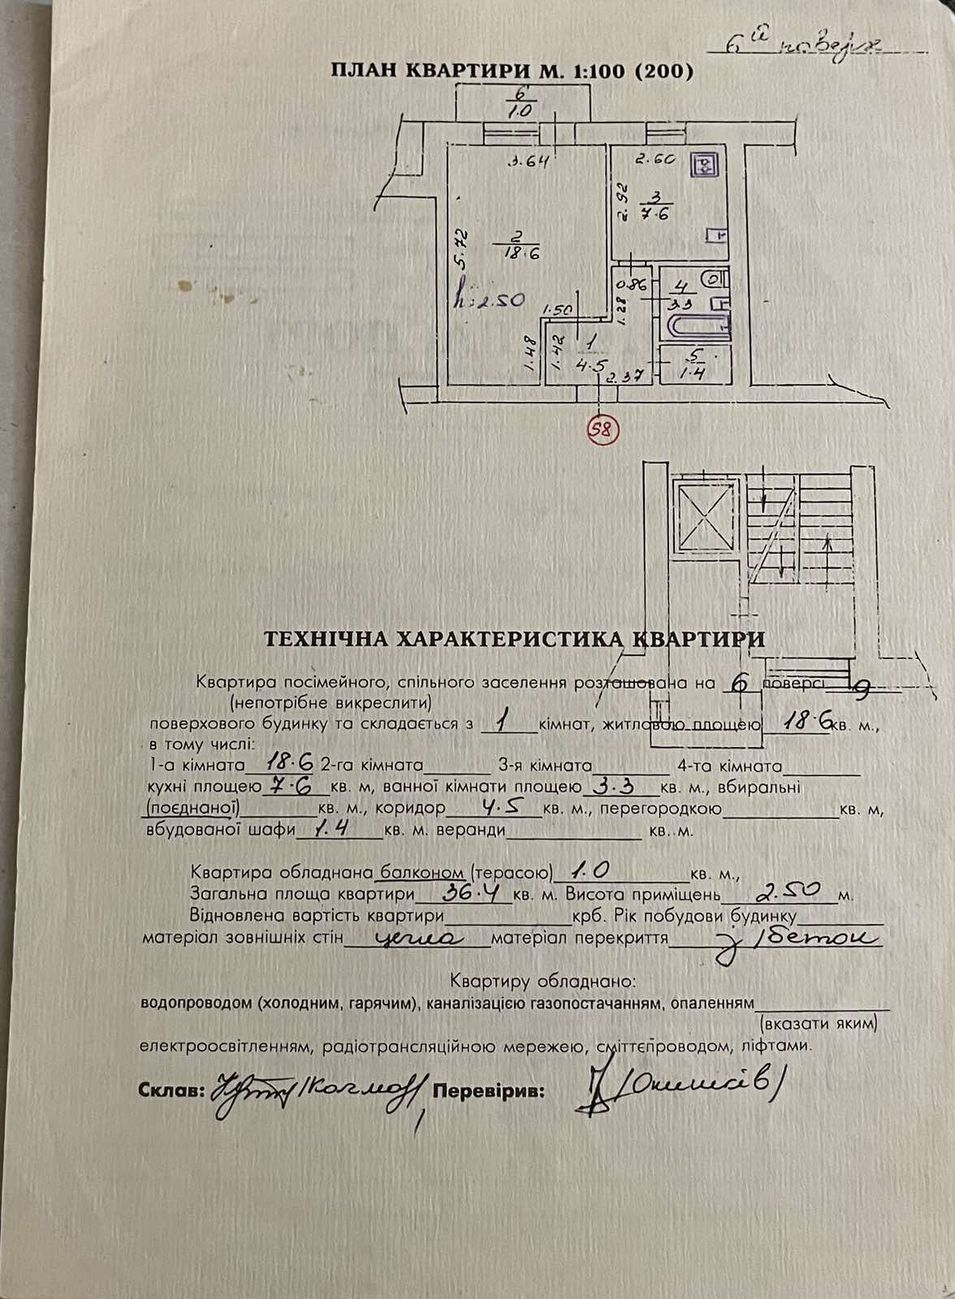 6й поверх
ПЛАН КВАРТИРИ М. 1:100 (200)
6
1.0
3.64
2.60
2.92
3
7.6
5.72
2
18.6
h=2.50
0.86
4
3.3
1.28
1.50
1.48
1.42
1
4.5
2.37
5
1.4
58
ТЕХНІЧНА ХАРАКТЕРИСТИКА КВАРТИРИ
Квартира посімейного, спільного заселення розташована на 6 поверсі 9
(непотрібне викреслити)
поверхового будинку та складається з 1 кімнат, житловою площею 18.6 кв. м.,
в тому числі:
1-а кімната 18.6 2-га кімната 3-я кімната 4-та кімната
кухні площею 7.6 кв. м, ванної кімнати площею 3.3 кв. м., вбиральні
(поєднаної) кв. м., коридор 4.5 кв. м., перегородкою кв. м,
вбудованої шафи 1.4 кв. м. веранди кв. м.
Квартира обладнана балконом (терасою) 1.0 кв. м.,
Загальна площа квартири 36.4 кв. м. Висота приміщень 2.50 м.
Відновлена вартість квартири крб. Рік побудови будинку
матеріал зовнішніх стін цегла матеріал перекриття з/бетон
Квартиру обладнано:
водопроводом (холодним, гарячим), каналізацією газопостачанням, опаленням
(вказати яким)
електроосвітленням, радіотрансляційною мережею, сміттєпроводом, ліфтами.
Склав: Перевірив: